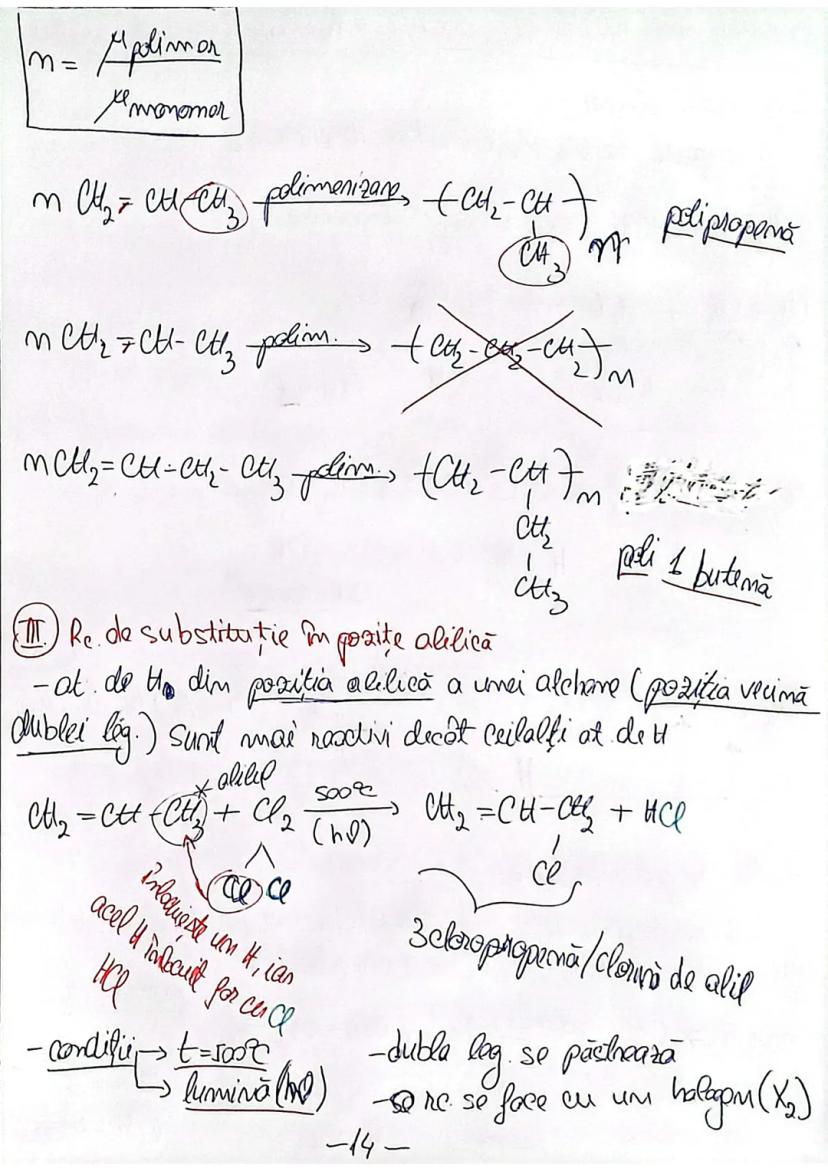 n = μ polimer / μ monomer
n CH₂ = CH-CH₃ polimerizare → -(CH₂-CH)-
CH₃ n polipropenă
n CH₂ = CH-CH₃ polim. → -(CH₂-CH₂-CH₂)n
n CH₂=CH-CH₂-CH₃ polim. → -(CH₂-CH)-n
CH₂
CH₃ poli 1 butenă
III Rc. de substituție în poziție alilică
-at. de H din poziția alilică a unei alchene (poziția vecină
dublei lég.) sunt mai reactivi decât ceilalți at. de H
* alilel
CH₂ = CH-CH₃ + Cl₂ 500°C (hν) → CH₂ =CH-CH₂ + HCl
Cl Cl
Cl
înlocuiește un H, iar
acel H înlocuit for cu Cl
HCl
3cloropropenă/clorură de alil
-condiții → t=500°C
→ lumină (hν)
-dubla leg. se păstrează
- rc. se face cu un halogen (X₂)
-14-